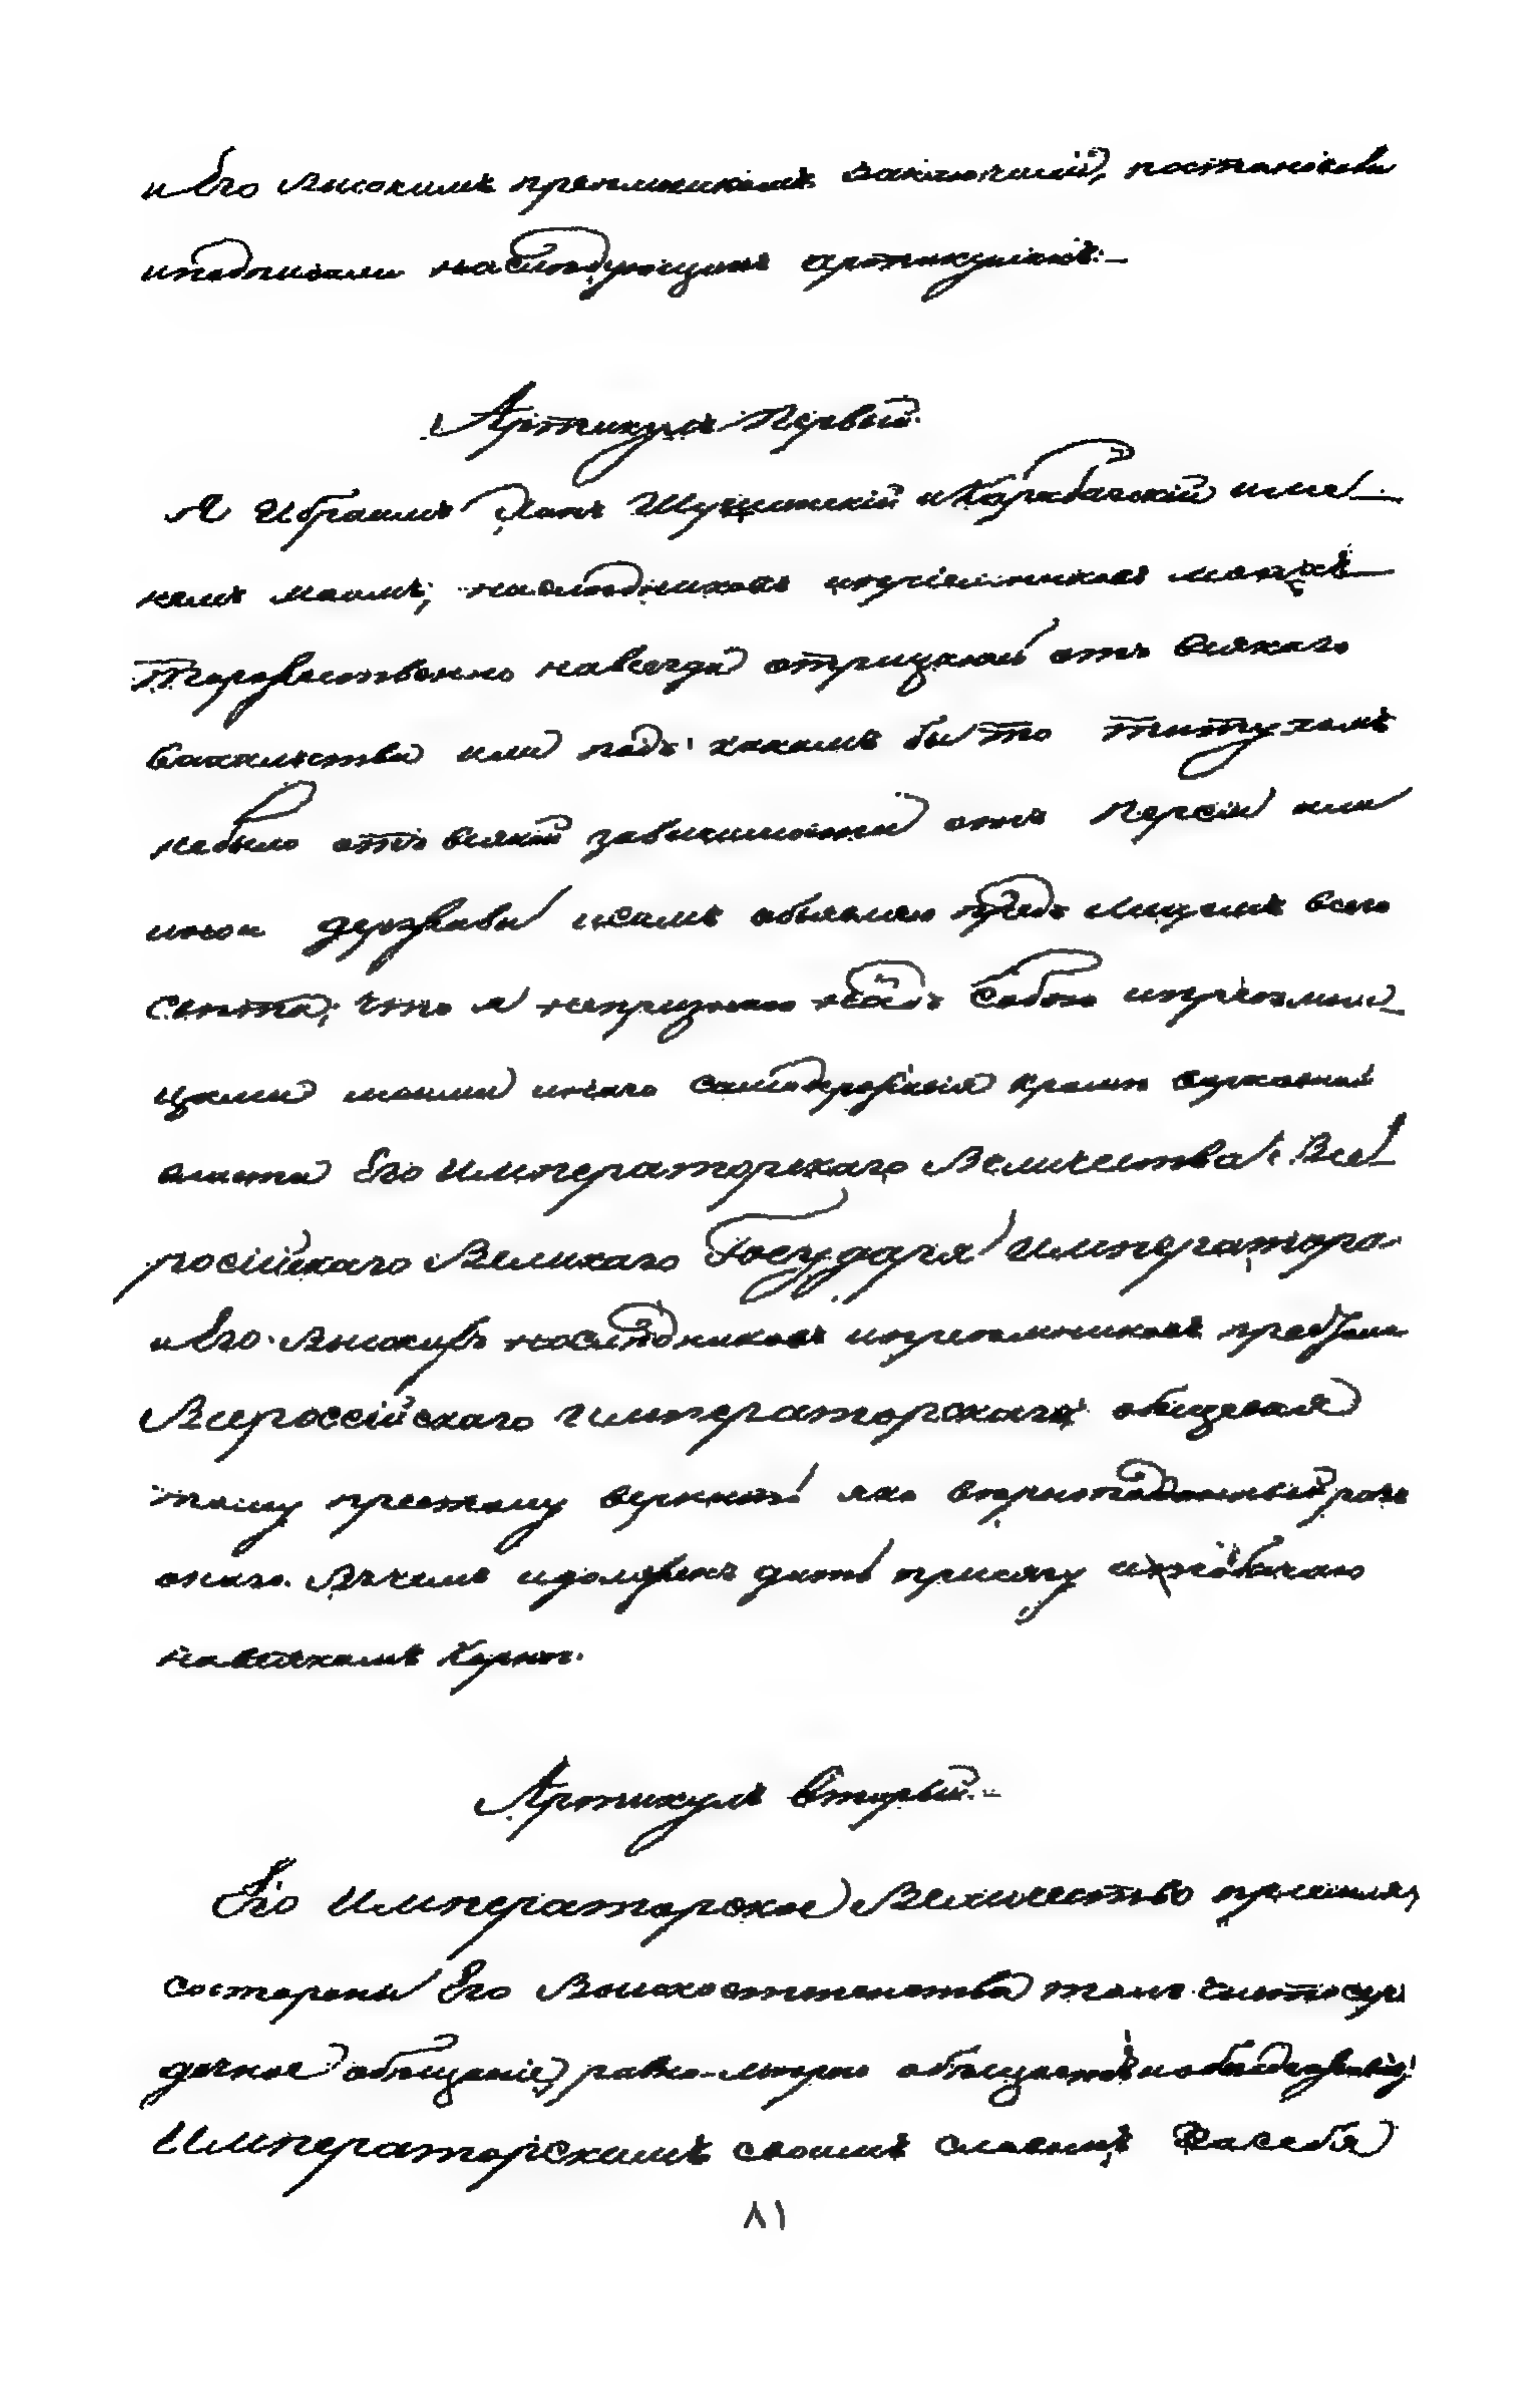 и Его высокими преемниками заключили, постановили
и подписали на следующих артикулах:
Артикул Первый
Я Ибраим Хан Шушинский и Карабагский име-
нем моим, наследников и преемников моих
торжественно навсегда отрицаюсь от всякаго
вассальства или под каким бы то титулом
не было от всякой зависимости от Персии или
иной державы и сим объявляю пред лицем всего
света, что я не признаю над собою и преемни-
ками моими инаго самодержавия кроме верховной
власти Его Императорскаго Величества Все-
российскаго Великаго Государя Императора
и Его Высоких наследников и преемников престола
Всероссийскаго Императорскаго обещевая
тому престолу верность яко верноподданный раб
онаго. В чем и должен дать присягу
на святом Коране.
Артикулъ вторый
Его Императорское Величество приемля,
со стороны Его Высокостепенства толь чистосер-
дечное обещание, равномерно обещает и обнадеживает
Императорским своим словом за себя
٨١